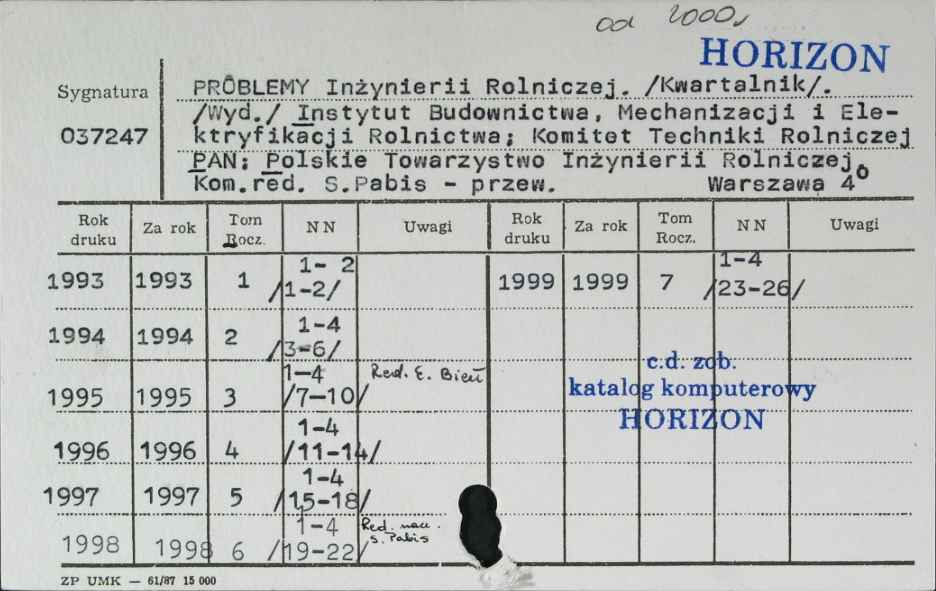 od 2000r
HORIZON
Sygnatura
037247
PROBLEMY Inżynierii Rolniczej. /Kwartalnik/.
/Wyd./ Instytut Budownictwa, Mechanizacji i Ele-
ktryfikacji Rolnictwa; Komitet Techniki Rolniczej
PAN; Polskie Towarzystwo Inżynierii Rolniczej.
Kom.red. S.Pabis - przew. Warszawa 4°
Rok druku Za rok Tom Rocz. NN Uwagi Rok druku Za rok Tom Rocz. NN Uwagi
1993 1993 1 1- 2 /1-2/ 1999 1999 7 1-4 /23-26/
1994 1994 2 1-4 /3-6/
1995 1995 3 1-4 /7-10/ Red. E. Bień
1996 1996 4 1-4 /11-14/
1997 1997 5 1-4 /15-18/
1998 1998 6 1-4 /19-22/ Red. nacz. S. Pabis
c.d. zob.
katalog komputerowy
HORIZON
ZP UMK — 61/87 15 000